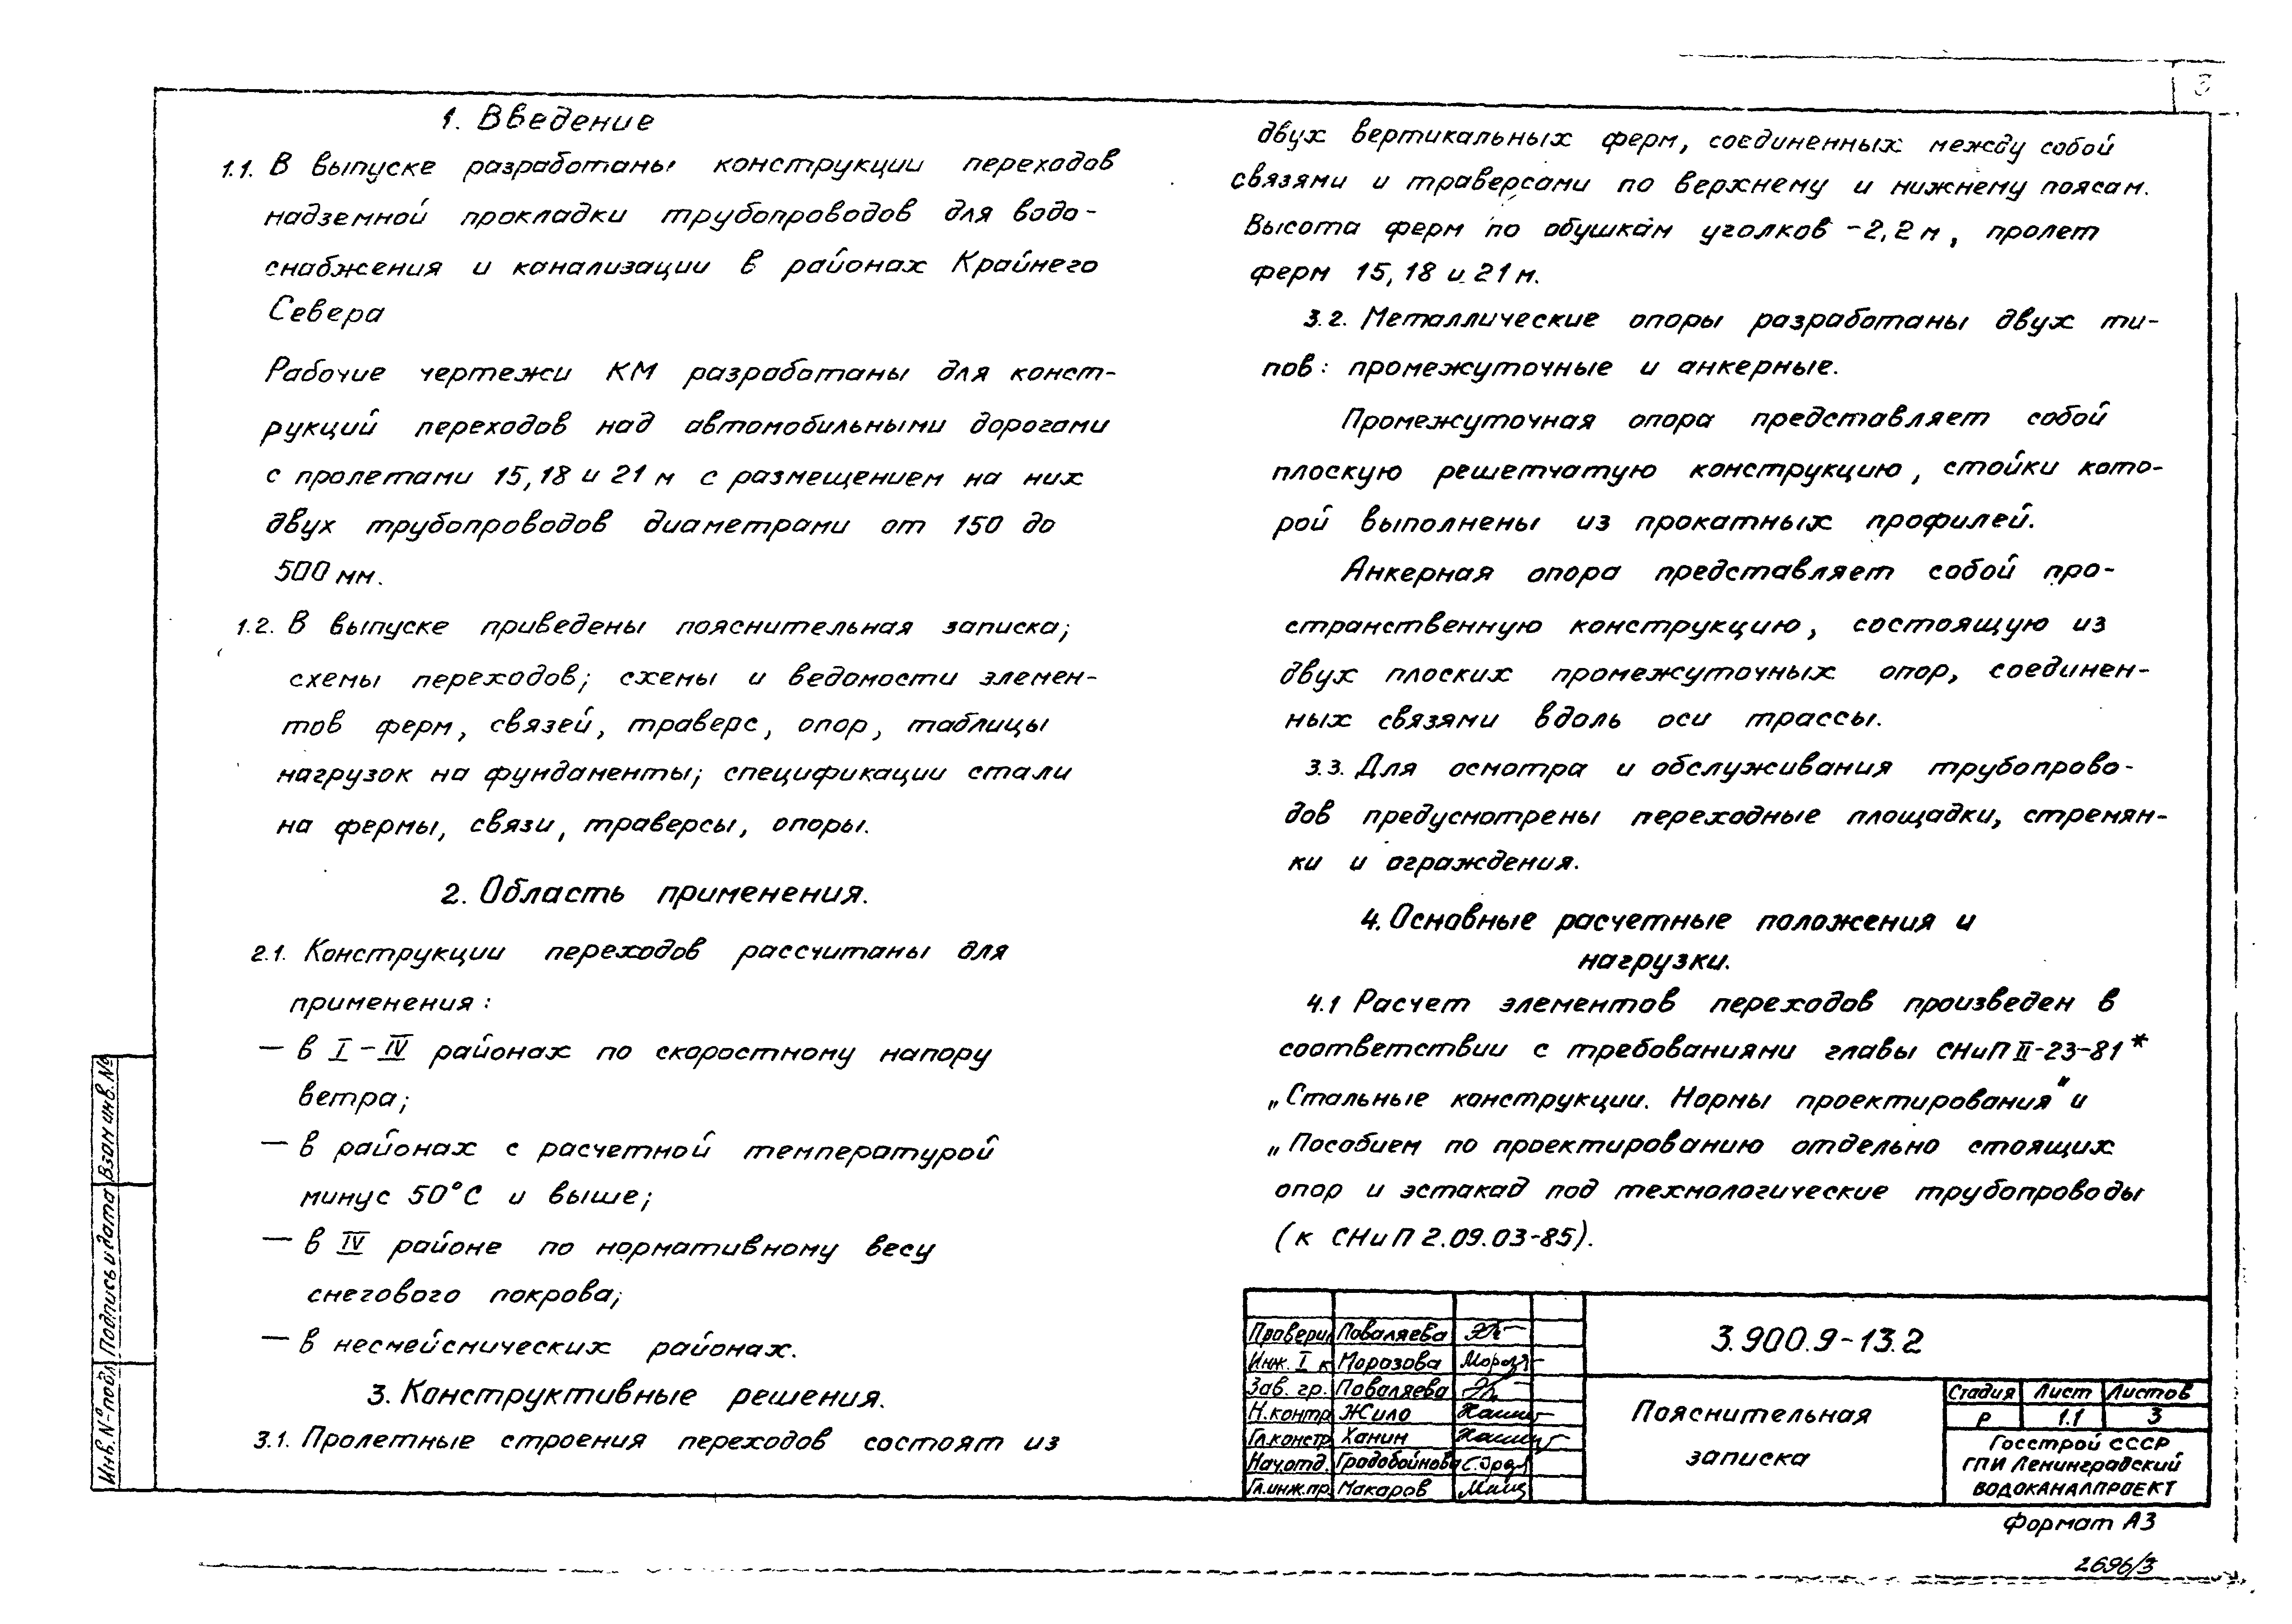 3
1. Введение
1.1. В выпуске разработаны конструкции переходов
надземной прокладки трубопроводов для водо-
снабжения и канализации в районах Крайнего
Севера
Рабочие чертежи КМ разработаны для конст-
рукций переходов над автомобильными дорогами
с пролетами 15, 18 и 21 м с размещением на них
двух трубопроводов диаметрами от 150 до
500 мм.
1.2. В выпуске приведены пояснительная записка;
схемы переходов; схемы и ведомости элемен-
тов ферм, связей, траверс, опор, таблицы
нагрузок на фундаменты; спецификации стали
на фермы, связи, траверсы, опоры.
2. Область применения.
2.1. Конструкции переходов рассчитаны для
применения:
— в I–IV районах по скоростному напору
ветра;
— в районах с расчетной температурой
минус 50°С и выше;
— в IV районе по нормативному весу
снегового покрова;
— в несмейсмических районах.
3. Конструктивные решения.
3.1. Пролетные строения переходов состоят из
двух вертикальных ферм, соединенных между собой
связями и траверсами по верхнему и нижнему поясам.
Высота ферм по обушкам уголков -2,2 м, пролет
ферм 15, 18 и 21 м.
3.2. Металлические опоры разработаны двух ти-
пов: промежуточные и анкерные.
Промежуточная опора представляет собой
плоскую решетчатую конструкцию, стойки кото-
рой выполнены из прокатных профилей.
Анкерная опора представляет собой про-
странственную конструкцию, состоящую из
двух плоских промежуточных опор, соединен-
ных связями вдоль оси трассы.
3.3. Для осмотра и обслуживания трубопрово-
дов предусмотрены переходные площадки, стремян-
ки и ограждения.
4. Основные расчетные положения и
нагрузки.
4.1 Расчет элементов переходов произведен в
соответствии с требованиями главы СНиП II-23-81*
„Стальные конструкции. Нормы проектирования" и
„Пособием по проектированию отдельно стоящих
опор и эстакад под технологические трубопроводы
(к СНиП 2.09.03-85).
Взам инв. №
Подпись и дата
Инв. № подл
Провери Поваляева
Инж. I к Морозова
Зав. гр. Поваляева
Н.контр Жило
Гл.констр Ханин
Нач.отд. Градобойнова
Гл.инж.пр. Макаров
3.900.9-13.2
Пояснительная
записка
Стадия Лист Листов
Р 1.1 3
Госстрой СССР
ГПИ Ленинградский
ВОДОКАНАЛПРОЕКТ
Формат А3
2696/3